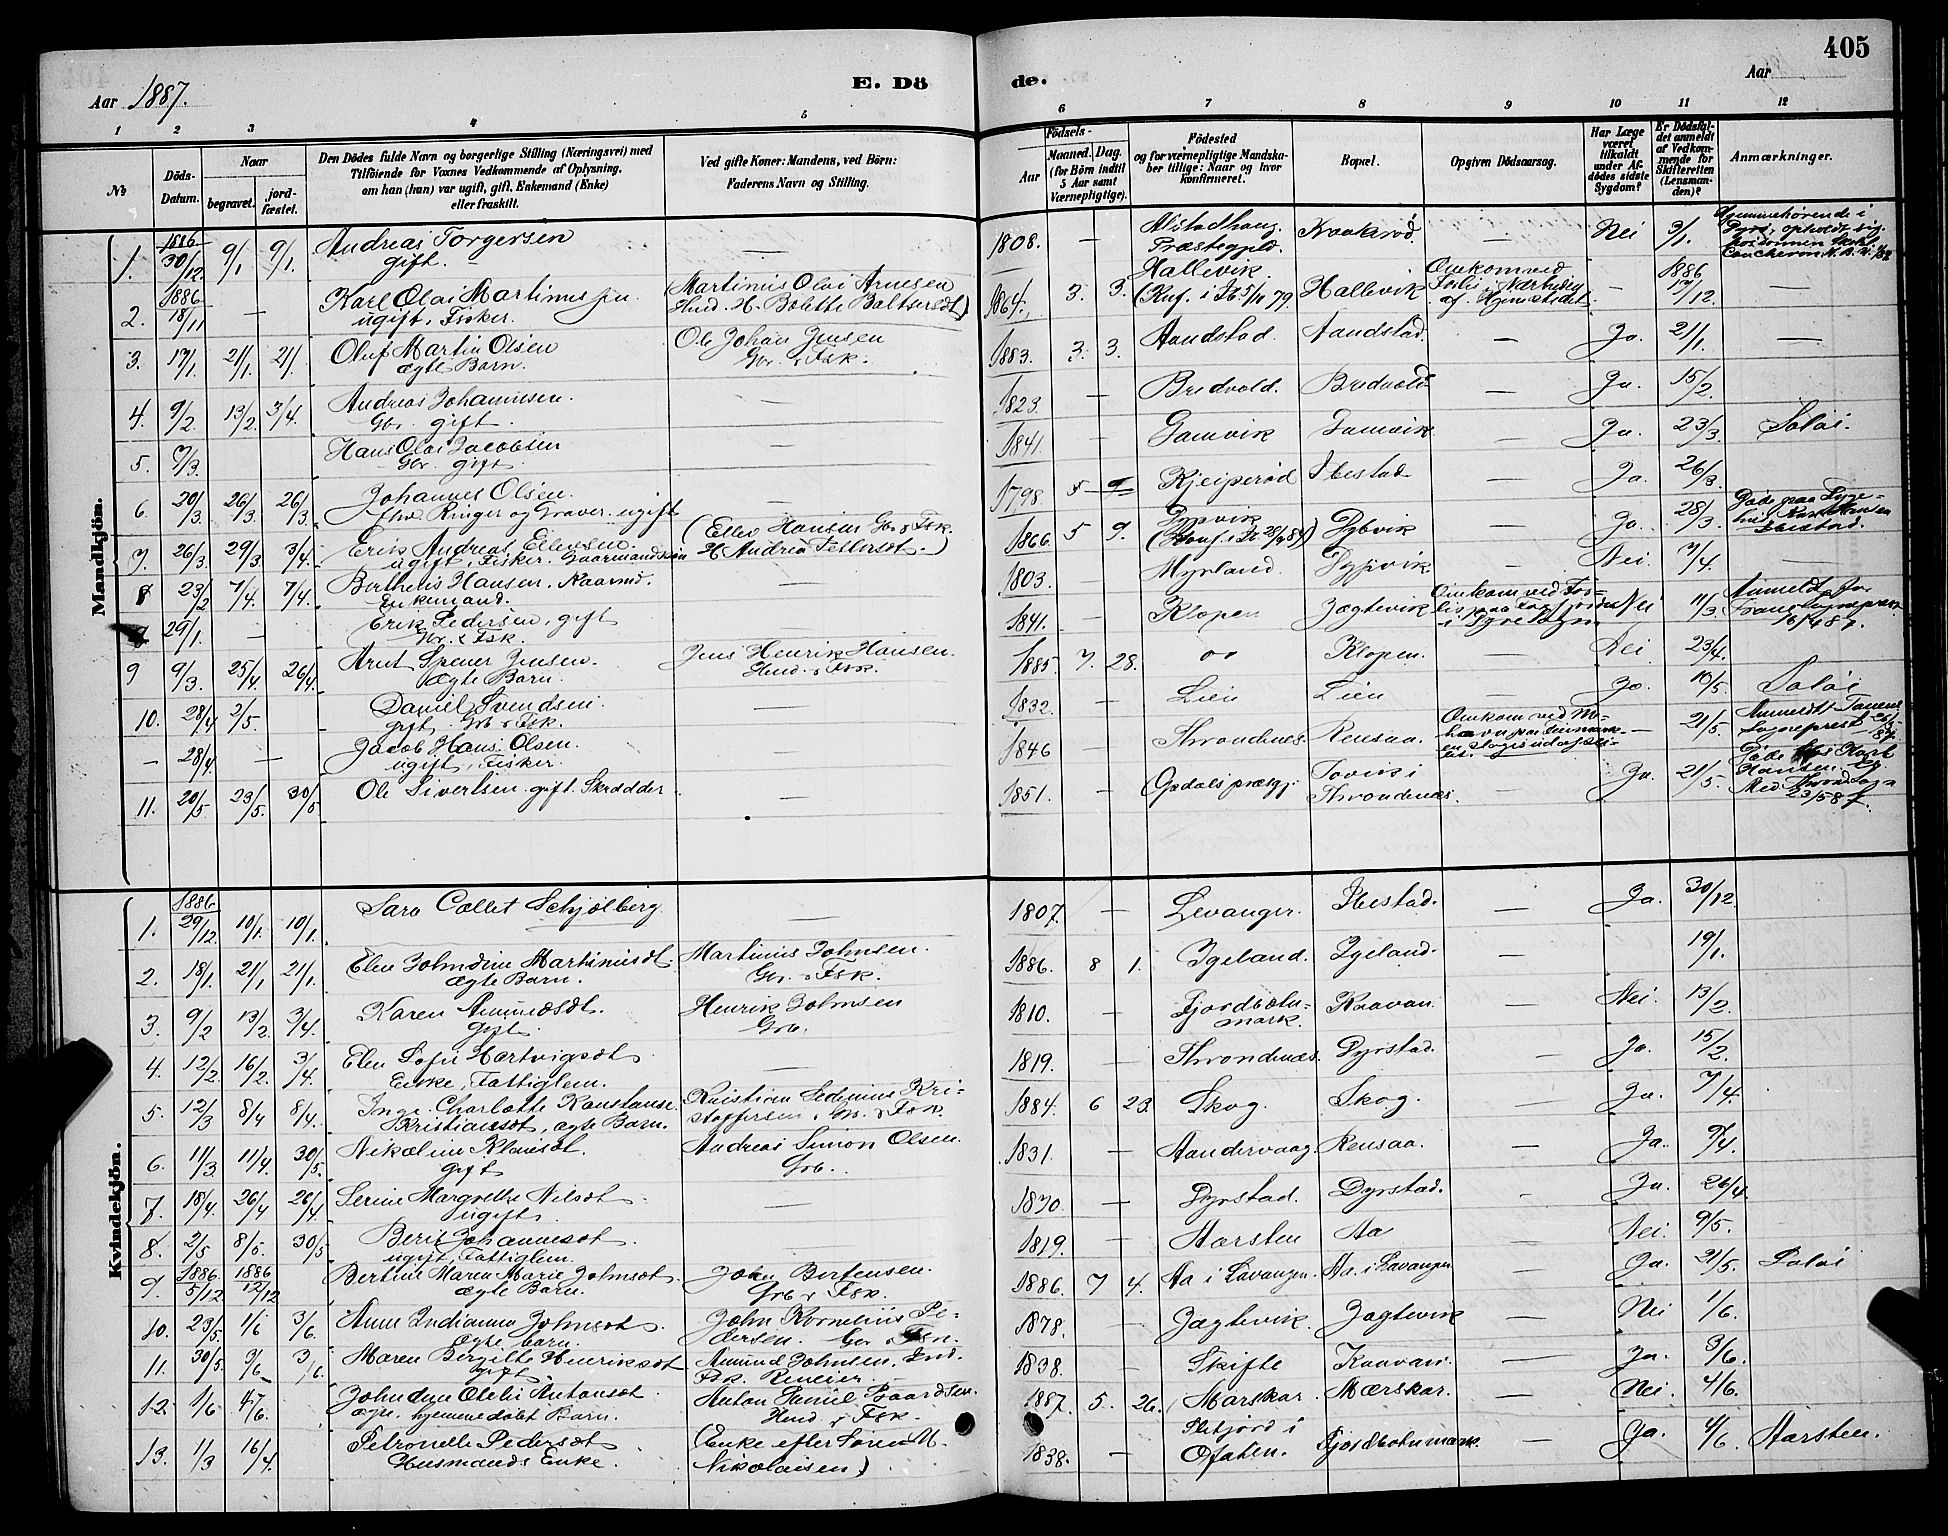 405
Aar 1887.
E. Dö
de.
Aar
1 2 3 4 5 6 7 8 9 10 11 12
№
Döds-Datum.
Naar
begravet.
jord-fæstet.
Den Dödes fulde Navn og borgerlige Stilling (Næringsvei) med
Tilföiende for Voxnes Vedkommende af Oplysning,
om han (hun) var ugift, gift, Enkemand (Enke)
eller fraskilt.
Ved gifte Koner: Mandens, ved Börn:
Faderens Navn og Stilling.
Födsels-
Aar
Maaned. Dag.
(for Börn indtil
5 Aar samt
Værnepligtige).
Födested
og for værnepligtige Mandska-
ber tillige: Naar og hvor
konfirmeret.
Bopæl.
Opgiven Dödsaarsag.
Har Læge
været
tilkaldt
under Af-
dødes sidste
Sygdom?
Er Dödsfal-
det anmeldt
af Vedkom-
mende for
Skifteretten
(Lensman-
den)?
Anmærkninger.
Mandkjön.
1. 1886 30/12 9/1 9/1. Andreas Torgersen gift. — 1808. — Alstadhaug Præstegjeld. Kraakrød. — Nei 3/1.
2. 1886 18/11 — Karl Olai Martinussen ugift, Fisker. Martinus Olai Arnesen Husm. H. Bolette Baltsersdt) 1864. 3. 3. Hallevik. Hallevik Omkom ved Forlis i Nærheden af Hjemstedet — 1886 17/12.
3. 17/1. 21/1. 21/1. Oluf Martin Olsen ægte Barn. Ole Johan Jensen Gbr. & Fsk. 1883. 3. 3. Aandstad. Aandstad. — Ja. 21/1. —
4. 9/2. 13/2. 3/4. Andreas Johannesen. Gbr. gift. — 1823. — Bredvold. Bredvold. — Ja. 15/2.
5. 7/3. Hans Olai Jacobsen Gbr. gift. — 1841. — Gamvik Gamvik — Ja. 23/3. Saløi.
6. 20/3. 26/3. 26/3. Johannes Olsen. fhv. Ringer og Graver. ugift — 1798. Kjeiperød Ibestad — Ja. 26/3.
7. 26/3. 29/3. 3/4. Erik Andreas Ellevsen. ugift, Fisker. Gaarmandssøn (Ellev Hansen Gbr & Fsk. H. Andrea Pettersdt.) 1866. 5 9. Dypvik Dybvik — Ja. 28/3.
8 23/2 7/4. 7/4. Bertheus Hansen. Enkemand. — 1803. — Myrland. Dypvik. — Nei. 7/4.
29/1. — Erik Pedersen, gift Gbr. & Fsk. — 1841. — Klopen Jægtevik Nei 11/3.
9 9/3. 25/4. 26/4. Arnt Spener Jensen. ægte Barn. Jens Henrik Hansen. Husm. & Fsk. 1885. 7. 28. Klopen. — Nei. 23/4.
10. 28/4 2/5. Daniel Svendsen gift Gbr & Fsk. — 1832. — Lien Lien — Ja. 10/5. Saløi
— 28/4. — Jacob Hans Olsen. ugift, Fisker. — 1846 — Throndnes. Rensaa. — 21/5.
11. 20/5 23/5. 30/5 Ole Sivertsen gift. Skrædder — 1851. — Opdals præstgj. Tovik i Throndenæs. — Ja. 21/5.
Kvindekjön.
1. 1886 29/12 10/1. 10/1. Sara Collet Schjølberg. — 1807. — Levanger. Ibestad. — Ja. 30/12.
2. 18/1. 21/1 21/1. Elen Johndine Martinusdt ægte Barn. Martinus Johnsen. Gbr. & Fsk. 1886. 8 1. Igeland. Igeland. — 19/1.
3. 9/2 13/2. 3/4. Karen Amundsdt. gift. Henrik Johnsen Grb. 1810. — Fjordbotnmark. Kaavan. Nei. 13/2.
4. 12/2. 16/2. 3/4. Elen Sofie Hartvigsdt Enke, Fattiglem. — 1819. — Throndnæs. Dyrstad. — Ja. 15/2.
5. 12/3 8/4 8/4. Inge Charlotte Konstanse Kristiansdt, ægte Barn. Kristian Sedenius Kristoffersen, Gbr. & Fsk. 1884. 6 23. Skog. Skog. — Ja. 7/4.
6. 11/3. 11/4. 30/5. Nikoline Klausdt. gift Andreas Simon Olsen. Grb. 1831. — Aandervaag. Rensaa. — Ja. 9/4.
7. 18/4. 26/4 26/4. Serine Margrethe Nilsdt ugift. — 1830. — Dyrstad. Dyrstad. — Ja. 26/4.
8. 2/5 8/5. 30/5 Berit Johannesdt. ugift, Fattiglem. 1819. — Aarsten Aa — Nei. 9/5.
9. 1886. 5/12 1886 12/12 Bertine Maren Marie Johnsdt. ægte Barn. John Bertensen. Grb & Fsk. 1886. 7 4. Aa i Lavangen. Aa. i Lavangen — Ja. 21/5. Saløi
10. 23/5. 1/6 3/6. Anne Indianna Johnsdt. ægte barn. John Kornelius Pedersen. Gbr & Fsk. 1878. Jægtevik. Jægtevik — Nei 1/6.
11. 30/5. 3/6 3/6. Maren Bergitte Henriksdt gift. Amund Johnsen, Ind. Fsk. 1838. — Skifte Kaavan. — Ja. 3/6.
12. 1/6 4/6. Johndine Otelie Antonsdt. ægte, hjemmedøbt Barn. Anton Daniel Baardsen. Husm & Fsk. 1887. 5. 26. Mærskar. Mærskar. — Nei. 4/6.
13. 1/3 16/4. Petronelle Pedersdt Husmands Enke. (Enke efter Søren M. Nikolaisen) 1838. — Ofoten. Fjordbotnmark. — Ja. 4/6. Aarsten.